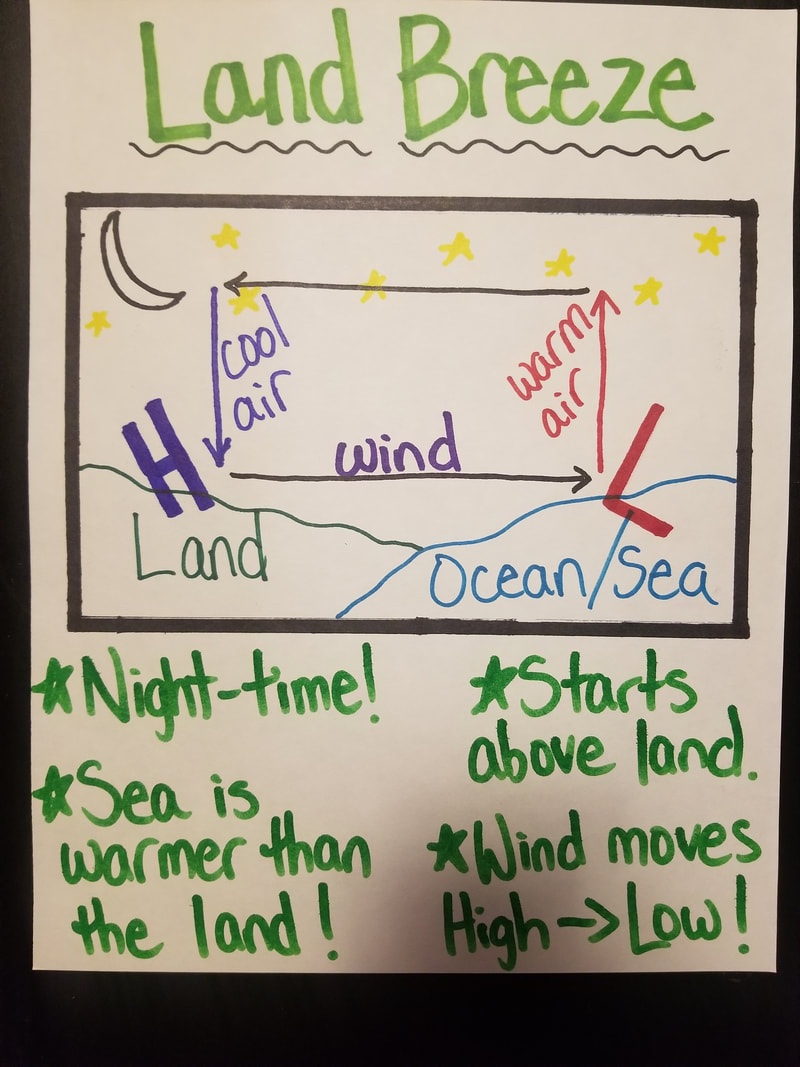 Land Breeze
cool
air
warm
air
H
wind
L
Land
Ocean/Sea
*Night-time!
*Sea is
warmer than
the land!
*Starts
above land.
*Wind moves
High→Low!